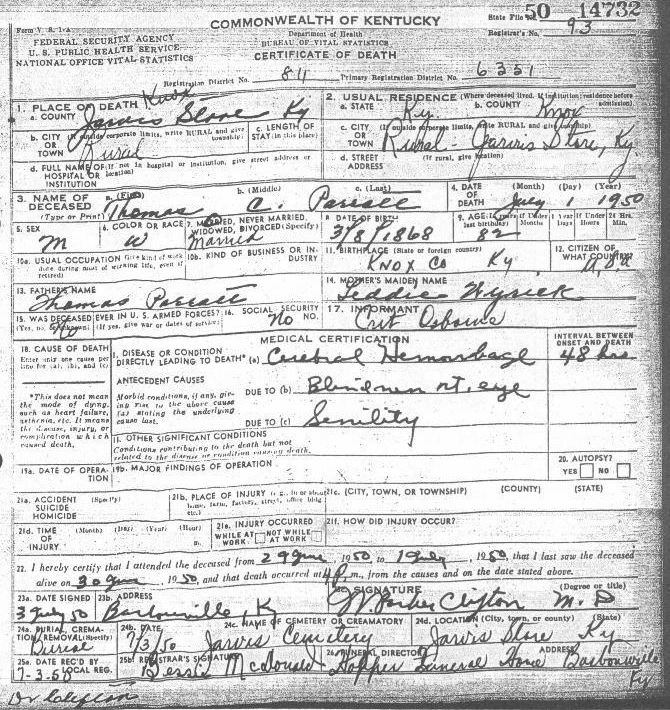 COMMONWEALTH OF KENTUCKY
State File No. 50 14732
Form V. S. 1-A
FEDERAL SECURITY AGENCY
U. S. PUBLIC HEALTH SERVICE
NATIONAL OFFICE VITAL STATISTICS
Department of Health
BUREAU OF VITAL STATISTICS
CERTIFICATE OF DEATH
Registrar's No. 93
Registration District No. 811 Primary Registration District No. 6351
1. PLACE OF DEATH Knox
a. COUNTY Jarvis Store Ky
2. USUAL RESIDENCE (Where deceased lived. If institution: residence before admission)
a. STATE Ky. b. COUNTY Knox
b. CITY (If outside corporate limits, write RURAL and give township)
OR TOWN Rural
c. LENGTH OF STAY (in this place)
c. CITY (If outside corporate limits, write RURAL and give township)
OR TOWN Rural - Jarvis Store, Ky.
d. FULL NAME OF (If not in hospital or institution, give street address or location)
HOSPITAL OR INSTITUTION
d. STREET ADDRESS (If rural, give location)
3. NAME OF DECEASED (Type or Print)
a. (First) b. (Middle) c. (Last)
Thomas C. Parrott
4. DATE OF DEATH (Month) (Day) (Year)
July 1 1950
5. SEX
M
6. COLOR OR RACE
W
7. MARRIED, NEVER MARRIED, WIDOWED, DIVORCED (Specify)
Married
8. DATE OF BIRTH
3/8/1868
9. AGE (In years last birthday) If Under 1 Year If Under 24 Hrs.
82 Months Days Hours Min.
10a. USUAL OCCUPATION (Give kind of work done during most of working life, even if retired)
10b. KIND OF BUSINESS OR INDUSTRY
11. BIRTHPLACE (State or foreign country)
KNOX Co Ky
12. CITIZEN OF WHAT COUNTRY?
13. FATHER'S NAME
Thomas Parrott
14. MOTHER'S MAIDEN NAME
15. WAS DECEASED EVER IN U. S. ARMED FORCES?
(Yes, no, or unknown) (If yes, give war or dates of service)
No
16. SOCIAL SECURITY NO.
No
17. INFORMANT
Crit Osborne
18. CAUSE OF DEATH
Enter only one cause per line for (a), (b), and (c)
*This does not mean the mode of dying, such as heart failure, asthenia, etc. It means the disease, injury, or complication which caused death.
MEDICAL CERTIFICATION
INTERVAL BETWEEN ONSET AND DEATH
I. DISEASE OR CONDITION
DIRECTLY LEADING TO DEATH* (a) Cerebral Hemorrhage 48 hrs
ANTECEDENT CAUSES
Morbid conditions, if any, giving rise to the above cause (a) stating the underlying cause last.
DUE TO (b) Blindness rt. eye
DUE TO (c) Senility
II. OTHER SIGNIFICANT CONDITIONS
Conditions contributing to the death but not related to the disease or condition causing death.
19a. DATE OF OPERATION
19b. MAJOR FINDINGS OF OPERATION
20. AUTOPSY?
YES NO
21a. ACCIDENT SUICIDE HOMICIDE (Specify)
21b. PLACE OF INJURY (e.g., in or about home, farm, factory, street, office bldg., etc.)
21c. (CITY, TOWN, OR TOWNSHIP) (COUNTY) (STATE)
21d. TIME OF INJURY (Month) (Day) (Year) (Hour) m.
21e. INJURY OCCURRED
WHILE AT WORK NOT WHILE AT WORK
21f. HOW DID INJURY OCCUR?
22. I hereby certify that I attended the deceased from 29 June, 1950, to 1 July, 1950, that I last saw the deceased
alive on 30 June, 1950, and that death occurred at 4 P. m., from the causes and on the date stated above.
23a. DATE SIGNED
3 July 50
23b. ADDRESS
Barbourville, Ky
23c. SIGNATURE (Degree or title)
Clifton M. D
24a. BURIAL, CREMATION, REMOVAL (Specify)
Burial
24b. DATE
7/3/50
24c. NAME OF CEMETERY OR CREMATORY
Jarvis Cemetery
24d. LOCATION (City, town, or county) (State)
Jarvis Store Ky
25a. DATE REC'D BY LOCAL REG.
7-3-50
25b. REGISTRAR'S SIGNATURE
Bess McDonald
26. FUNERAL DIRECTOR ADDRESS
Hopper Funeral Home Barbourville Ky